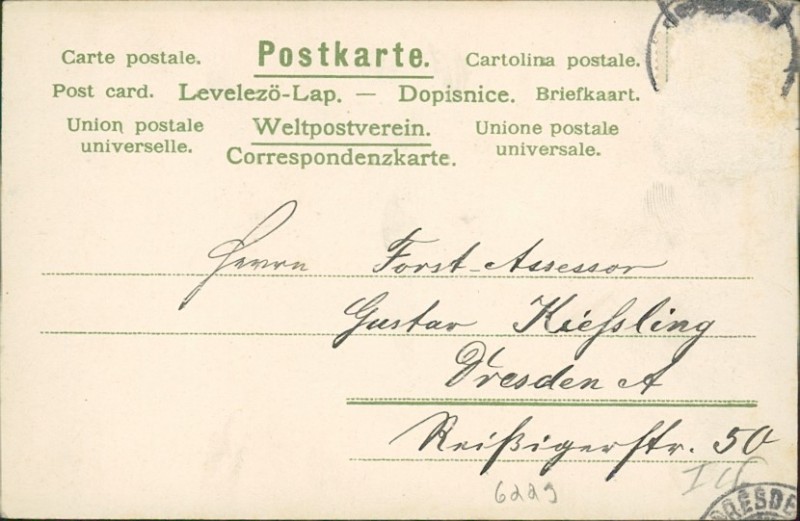 Carte postale. Postkarte. Cartolina postale.
Post card. Levelezö-Lap. — Dopisnice. Briefkaart.
Union postale universelle. Weltpostverein. Unione postale universale.
Correspondenzkarte.
Herrn Forst-Assessor
Gustav Kieſsling
Dresden A
Reißigerstr. 50
6229
DRESDE